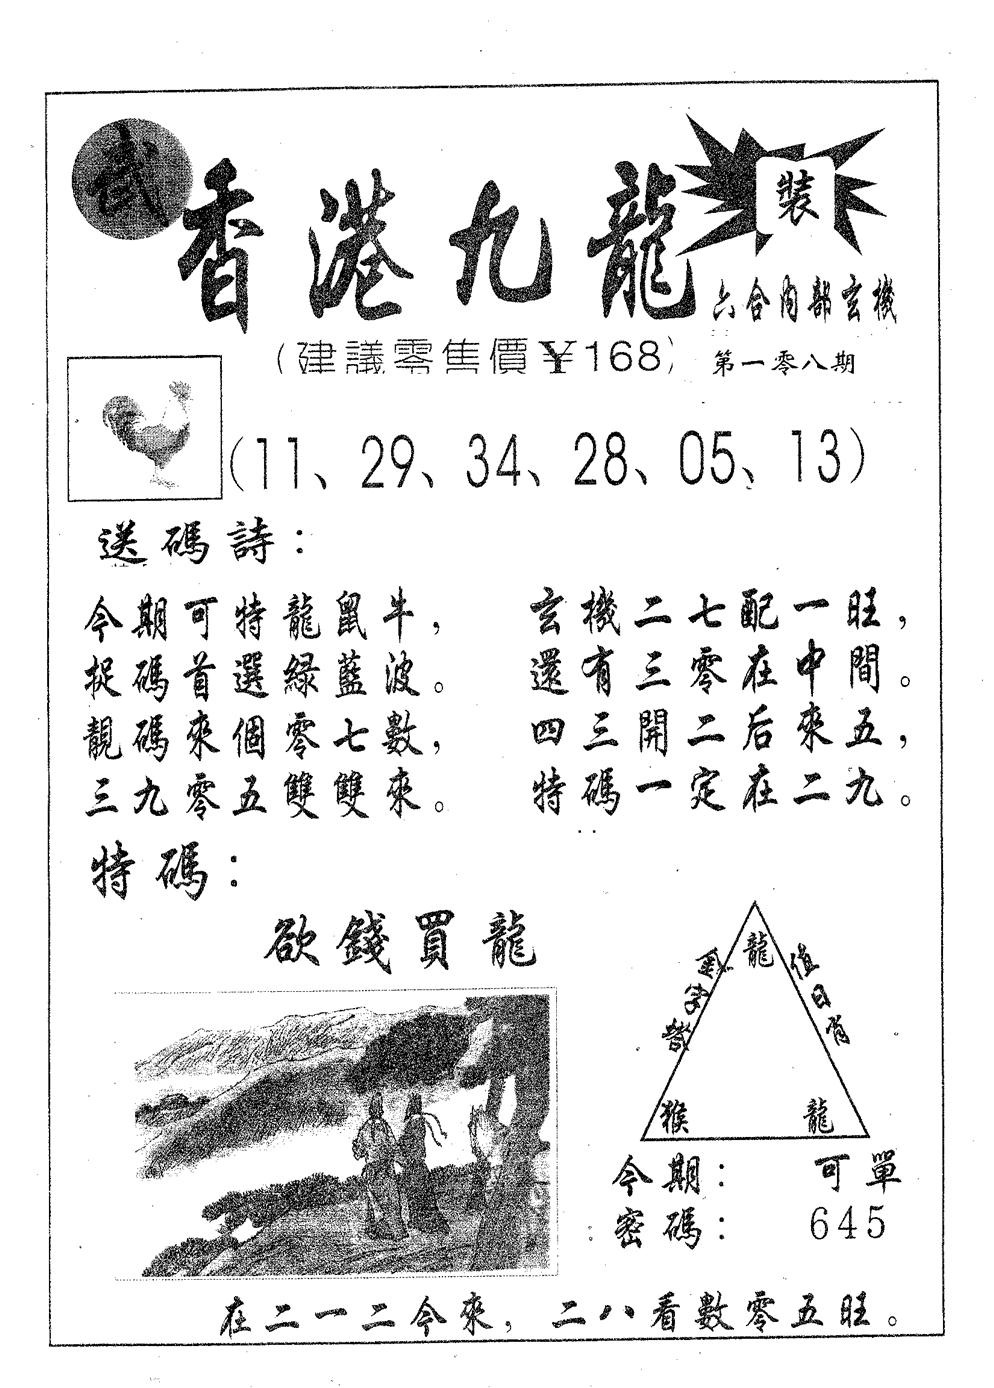 武
裝
香港九龍
六合內部玄機
(建議零售價¥168)
第一零八期
(11、29、34、28、05、13)
送碼詩：
今期可特龍鼠牛，
捉碼首選綠藍波。
靚碼來個零七數，
三九零五雙雙來。
玄機二七配一旺，
還有三零在中間。
四三開二后來五，
特碼一定在二九。
特碼：
欲錢買龍
龍
值日肖
猴
龍
今期：可單
密碼：645
在二一二今來，二八看數零五旺。